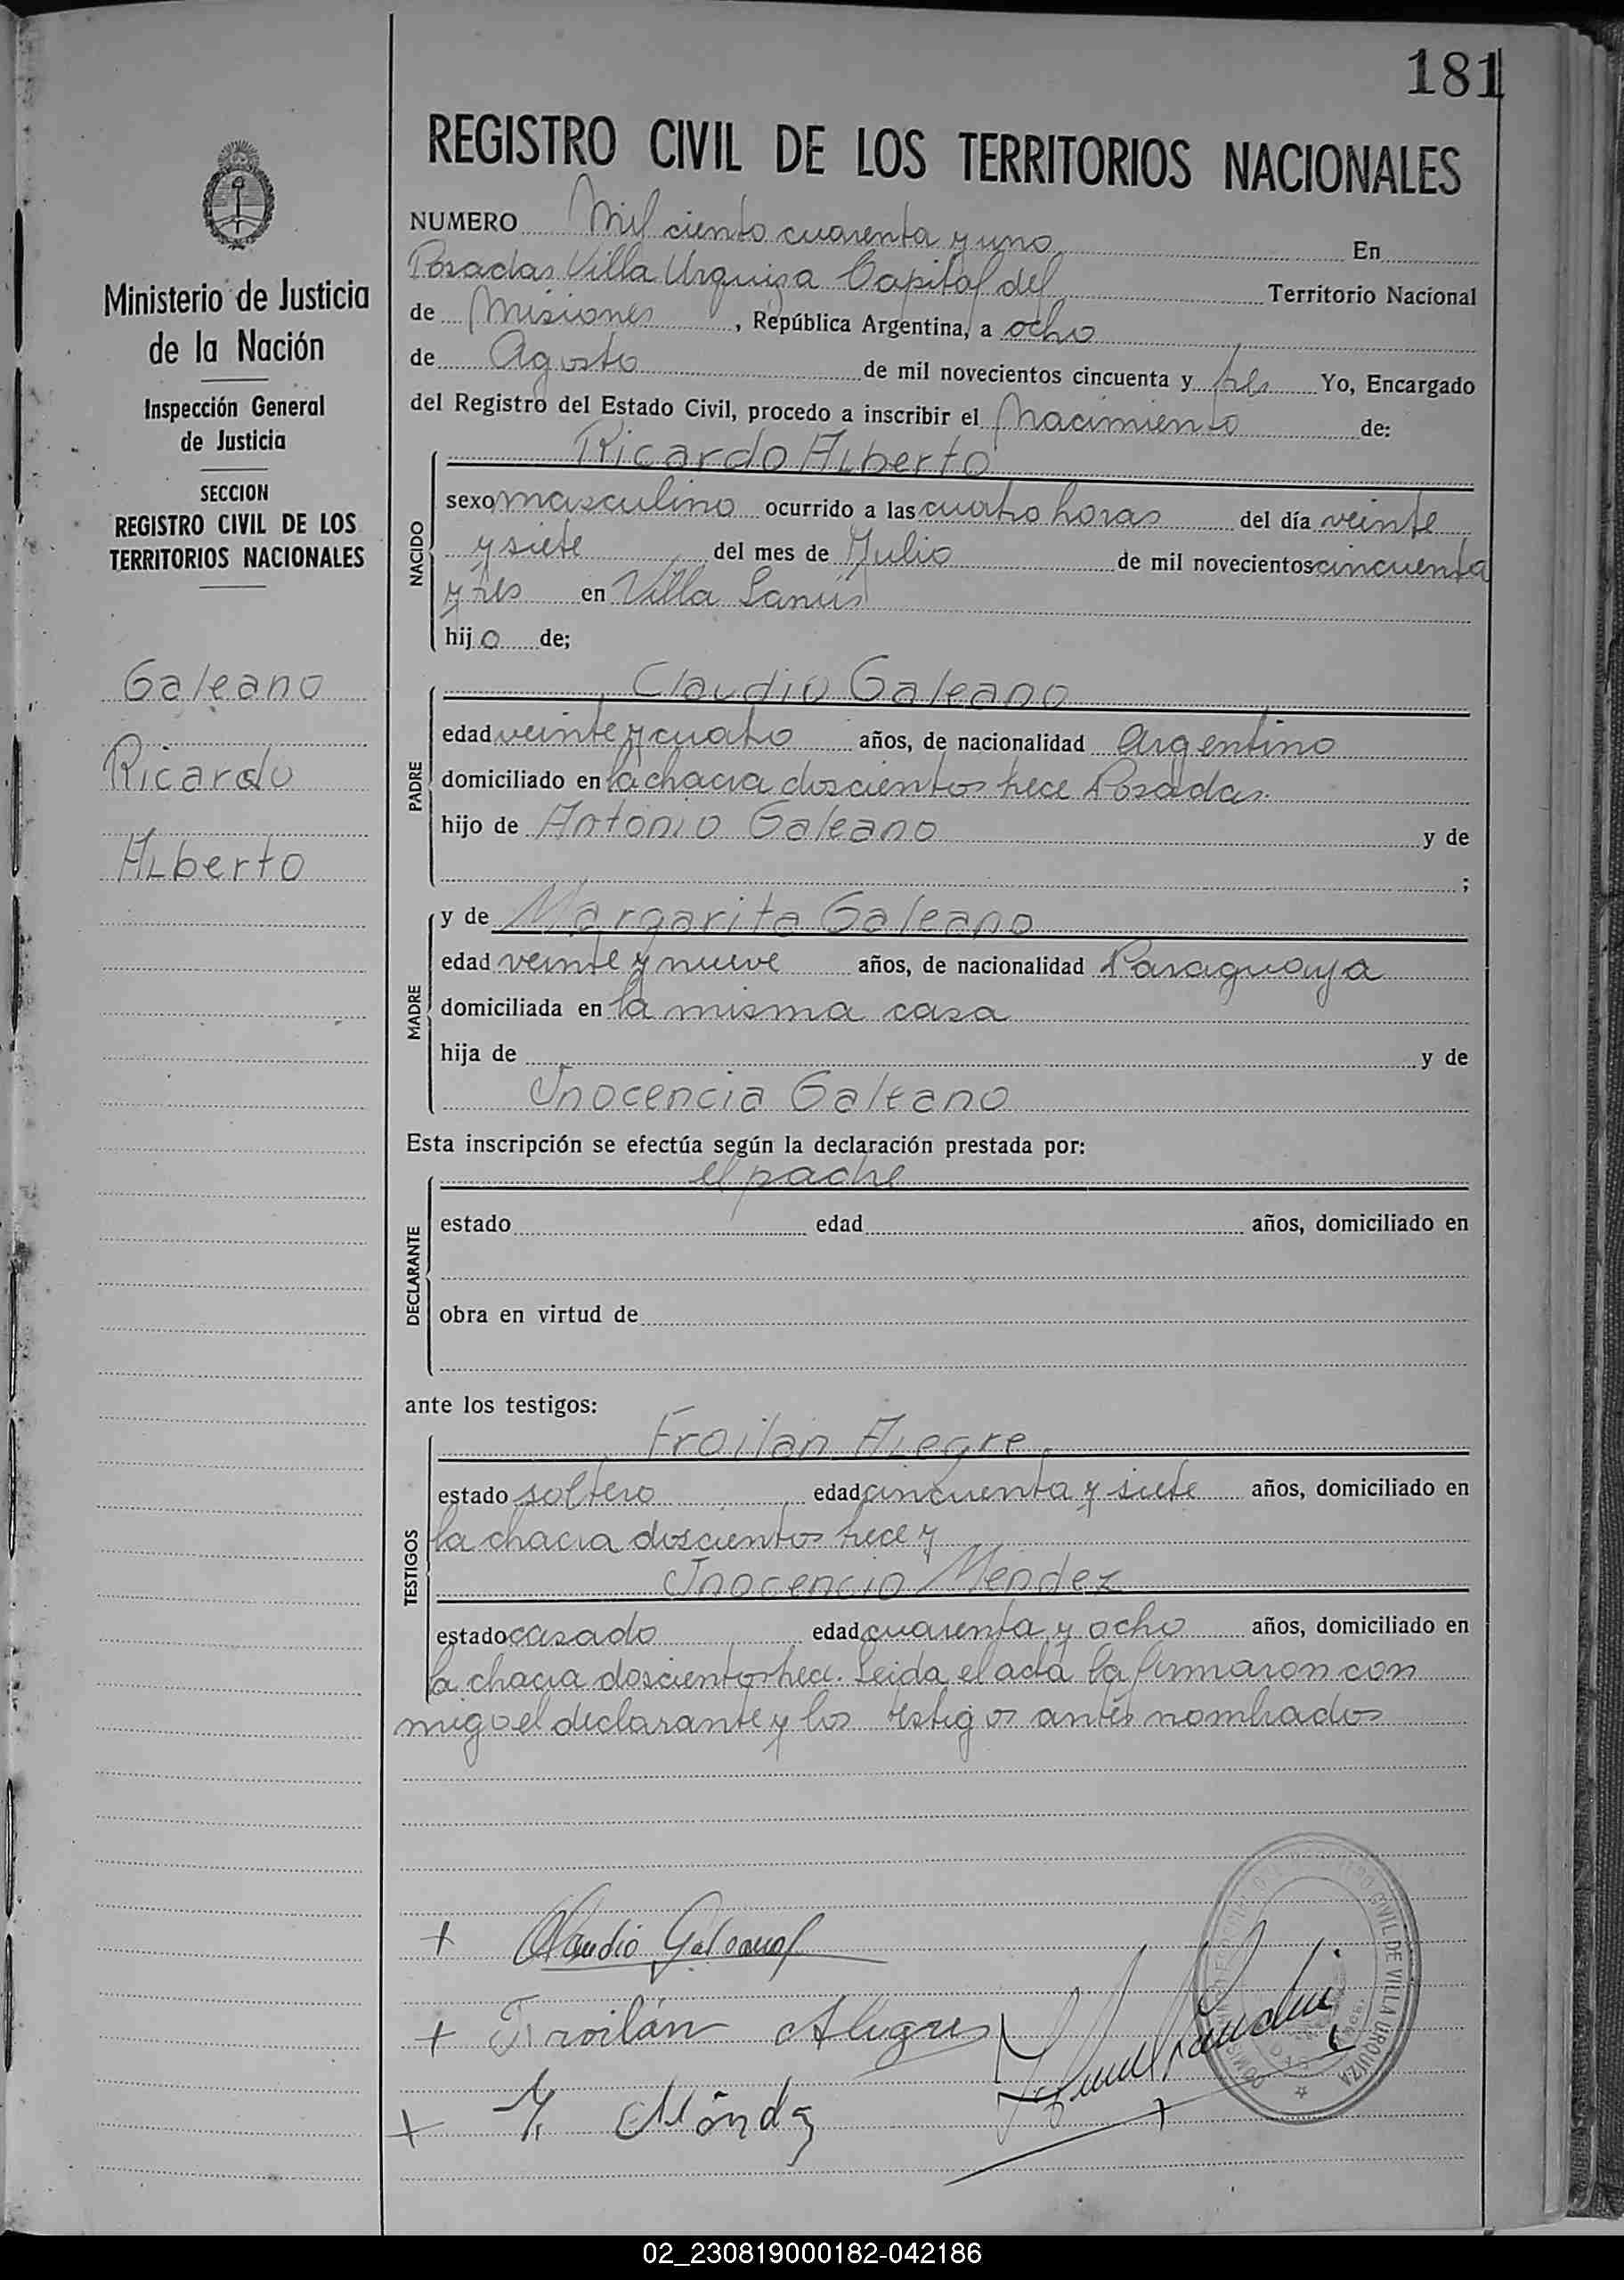 181
REGISTRO CIVIL DE LOS TERRITORIOS NACIONALES
Ministerio de Justicia
de la Nación
Inspección General
de Justicia
SECCION
REGISTRO CIVIL DE LOS
TERRITORIOS NACIONALES
Galeano
Ricardo
Alberto
NUMERO Mil ciento cuarenta y uno En
Posadas Villa Urquiza Capital del Territorio Nacional
de Misiones, República Argentina, a ocho
de Agosto de mil novecientos cincuenta y tres Yo, Encargado
del Registro del Estado Civil, procedo a inscribir el Nacimiento de:
NACIDO
Ricardo Alberto
sexo masculino ocurrido a las cuatro horas del día veinte
y siete del mes de Julio de mil novecientos cincuenta
y tres en Villa Lanús
hijo de;
PADRE
Claudio Galeano
edad veinte y cuatro años, de nacionalidad Argentino
domiciliado en la chacra doscientos trece Posadas.
hijo de Antonio Galeano y de
;
MADRE
y de Margarita Galeano
edad veinte y nueve años, de nacionalidad Paraguaya
domiciliada en la misma casa
hija de y de
Inocencia Galeano
Esta inscripción se efectúa según la declaración prestada por:
DECLARANTE
el padre
estado edad años, domiciliado en
obra en virtud de
ante los testigos:
TESTIGOS
Froilan Alegre
estado soltero edad cincuenta y siete años, domiciliado en
la chacra doscientos trece y
Inocencio Mendez
estado casado edad cuarenta y ocho años, domiciliado en
la chacra doscientos trece. Leida el acta la firmaron con
migo el declarante y los testigos antes nombrados
+ Claudio Galeano
+ Froilán Alegre
+ Y. Méndez
CIVIL DE VILLA URQUIZA
02_230819000182-042186